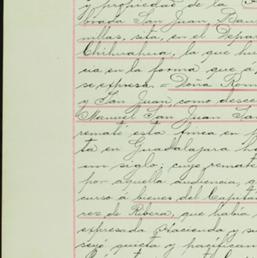 y propiedad de la
brada San Juan, Bau
nillas, sita, en el Depar
Chihuahua, la que hu
cia en la forma que a
se expresa. = Doña Rom
y San Juan, como desce
Manuel San Juan
remate esta finca en
ta en Guadalajara ha
un siglo; cuyo remate
por aquella audiencia, y
curso a bienes del Capitan
res de Ribera, que había
expresada Hacienda y su
seyó quieta y pacifican